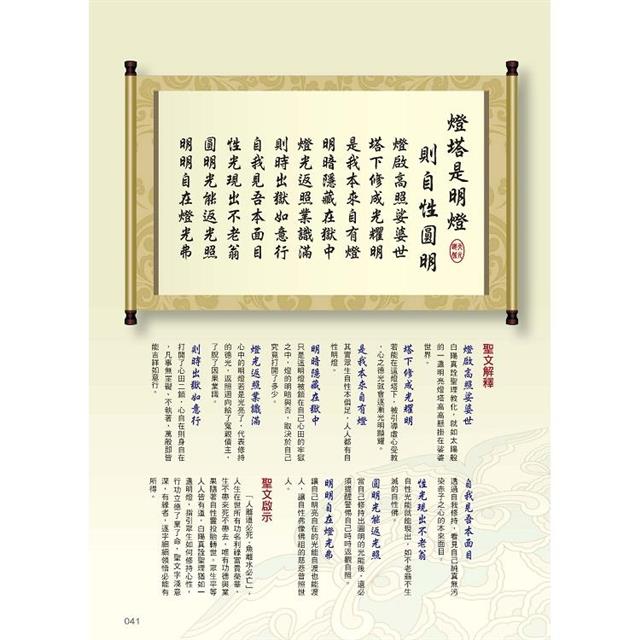 燈塔是明燈
則自性圓明
燈啟高照娑婆世
塔下修成光耀明
是我本來自有燈
明暗隱藏在獄中
燈光返照業識滿
則時出獄如意行
自我見吾本面目
性光現出不老翁
圓明光能返光照
明明自在燈光弗
聖文解釋
燈啟高照娑婆世
白陽真詮聖理教化，就如太陽般
的一盞明亮燈塔高高懸掛在娑婆
世界。
塔下修成光耀明
若能在這燈塔下，被引導虛心受教
，心之德光就會逐漸光明顯耀。
是我本來自有燈
其實眾生自性本俱足，人人都有自
性明燈。
明暗隱藏在獄中
只是這明燈被鎖在自己心田的牢獄
之中，燈的明暗與否，取決於自己
究竟打開了多少。
燈光返照業識滿
心中的明燈若是光亮了，代表修持
的德光，返照迴向給了冤親債主，
了脫了因果業識。
則時出獄如意行
打開了心田二鎖，心自在則身自在
，凡事無罣礙、不執著，萬般即皆
能吉祥如意行。
自我見吾本面目
透過自我修持，看見自己純真無污
染赤子之心的本來面目。
性光現出不老翁
自性光能就能現出，如不老翁不生
滅的自性佛。
圓明光能返光照
當自己修持出圓明的光能後，還必
須提醒警惕自己時時返觀自照。
明明自在燈光弗
讓自己明亮自在的光能自渡也能渡
人，讓自性弗像佛祖的慈悲普照世
人。
聖文啟示
「人離道必死，魚離水必亡」，
人生在世所有功名利祿富貴榮華，
生不帶來死不帶去，唯有功德與業
果隨著自性靈投胎轉世。眾生平等
人人皆有道，白陽真詮聖理猶如一
盞明燈，指引眾生如何修持心性，
行功立德了業了命，聖文字淺意
深，有緣者，逐字細細領悟必能有
所得。
041